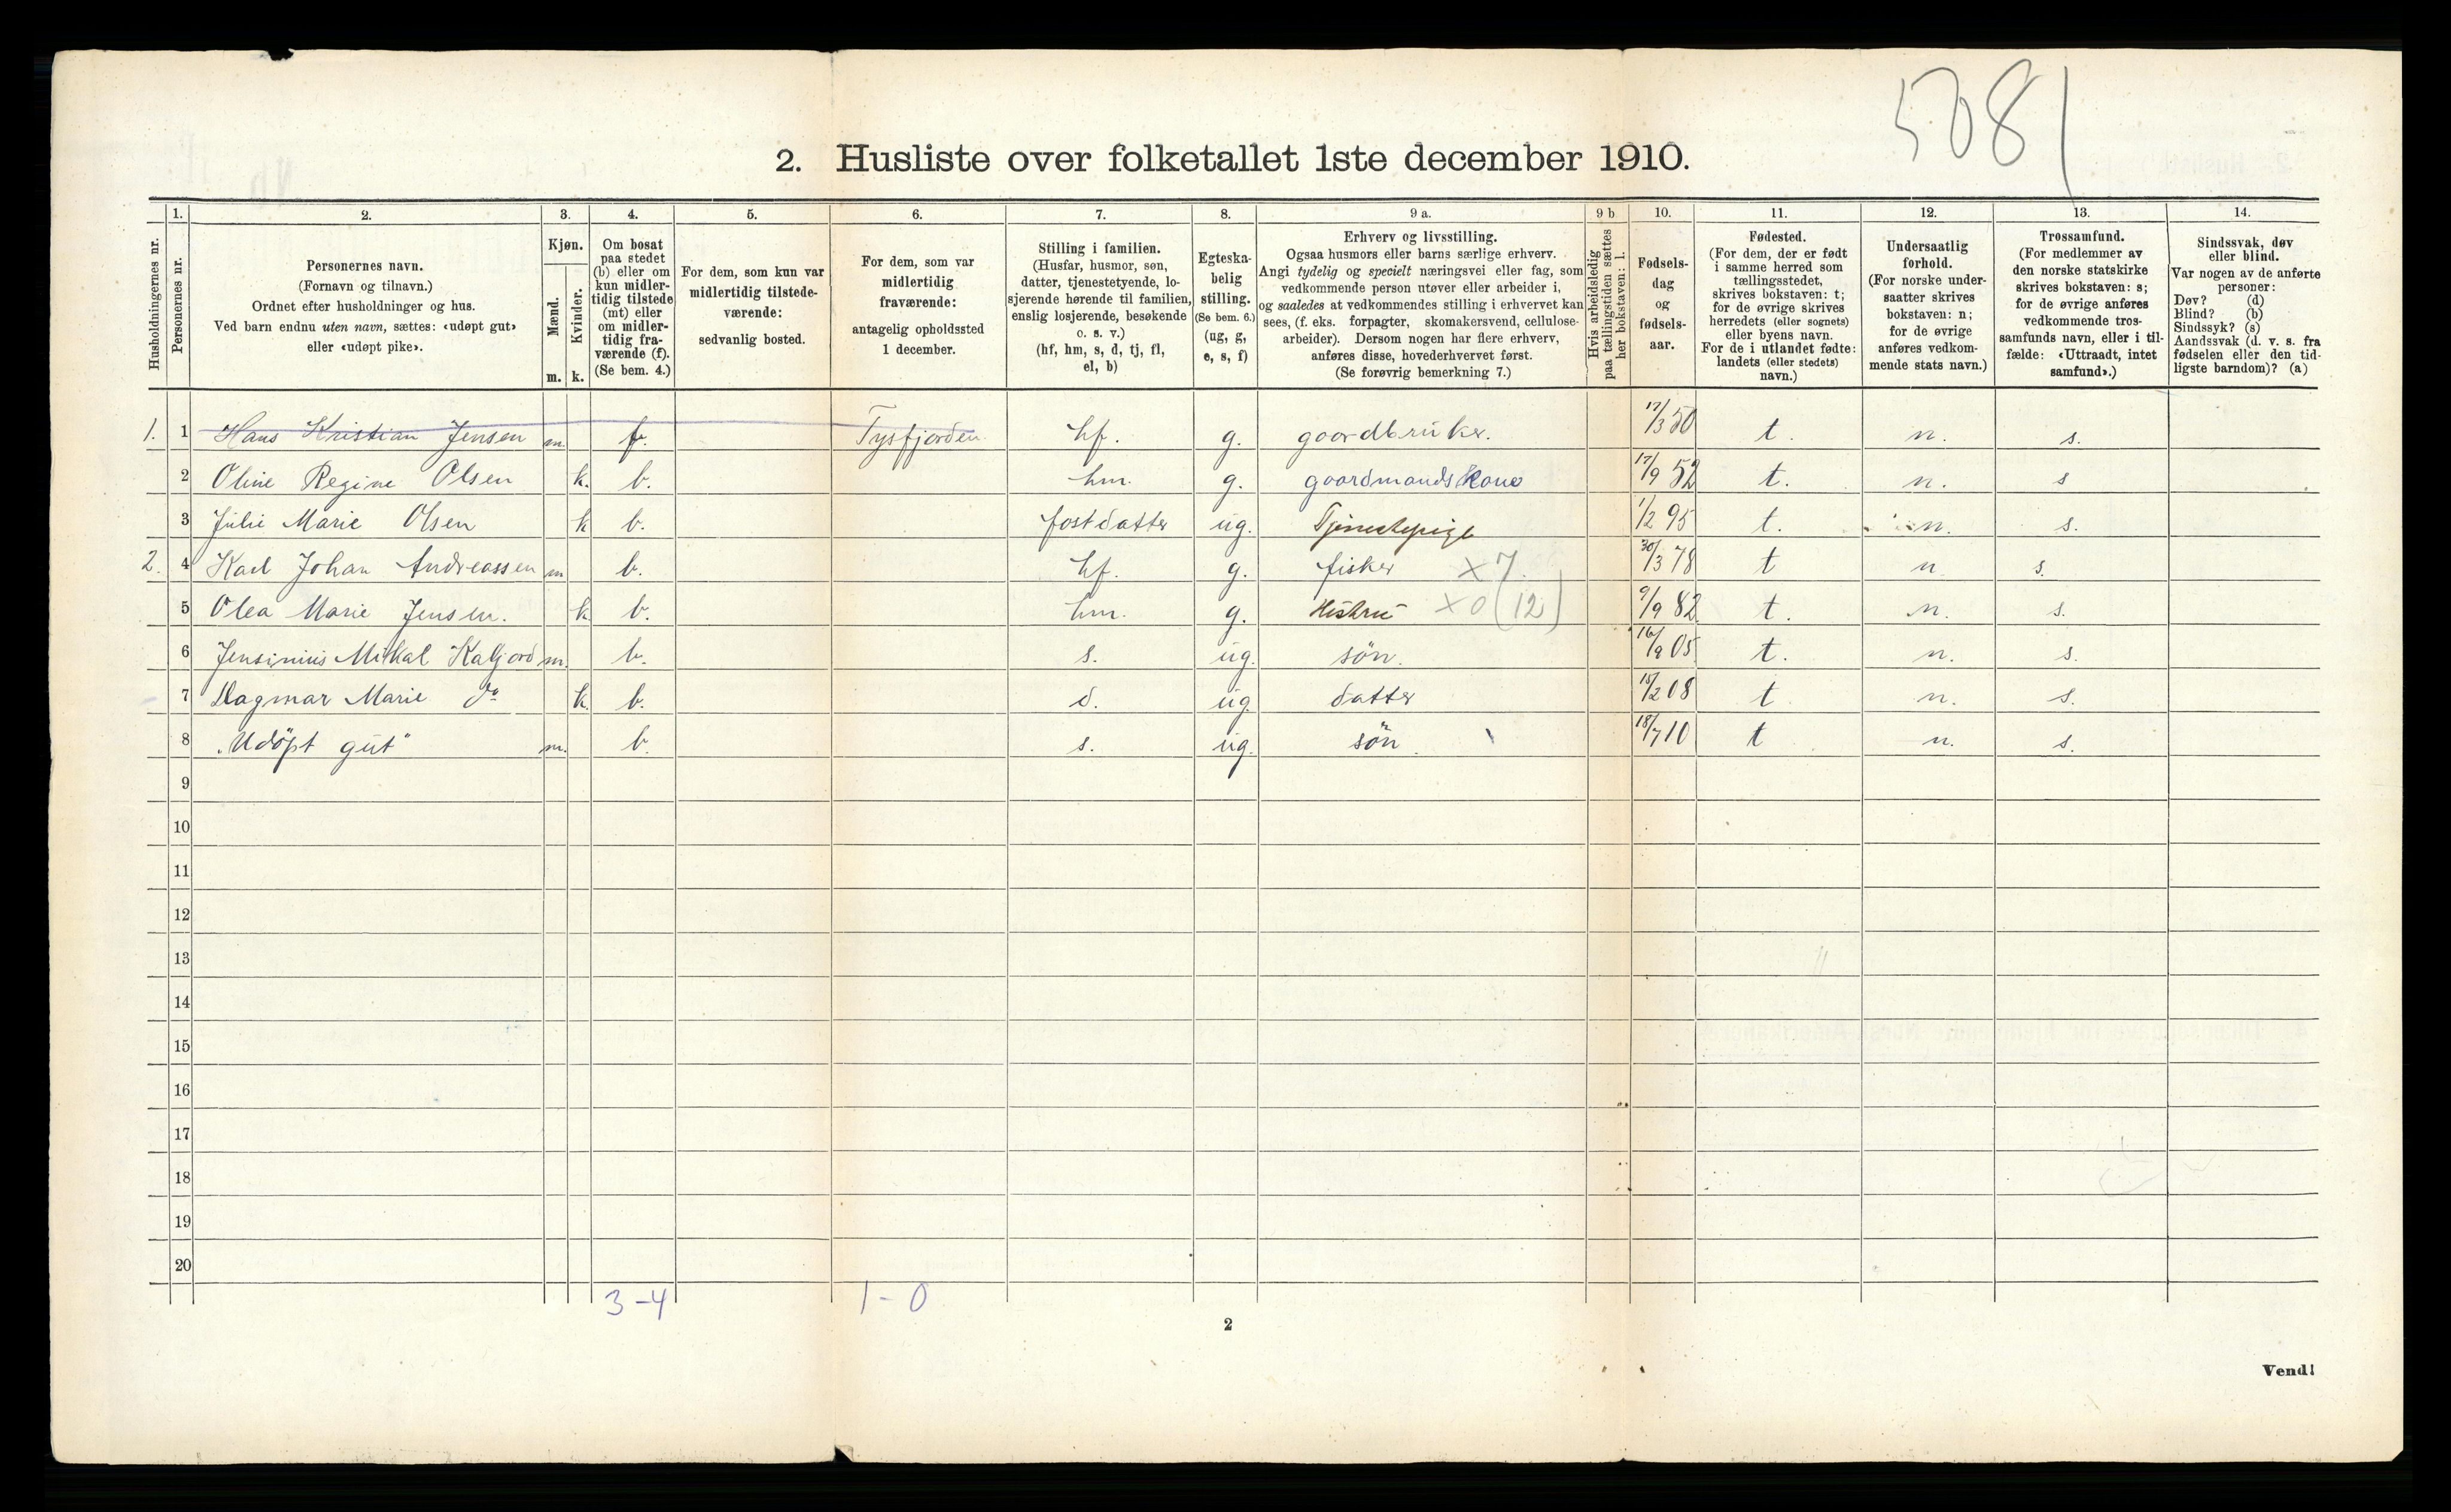 5081
2. Husliste over folketallet 1ste december 1910.
Husholdningernes nr.
1.
Personernes nr.
2.
Personernes navn.
(Fornavn og tilnavn.)
Ordnet efter husholdninger og hus.
Ved barn endnu uten navn, sættes: «udøpt gut»
eller «udøpt pike».
3.
Kjøn.
Mænd.
Kvinder.
m. k.
4.
Om bosat
paa stedet
(b) eller om
kun midler-
tidig tilstede
(mt) eller
om midler-
tidig fra-
værende (f).
(Se bem. 4.)
5.
For dem, som kun var
midlertidig tilstede-
værende:
sedvanlig bosted.
6.
For dem, som var
midlertidig
fraværende:
antagelig opholdssted
1 december.
7.
Stilling i familien.
(Husfar, husmor, søn,
datter, tjenestetyende, lo-
sjerende hørende til familien,
enslig losjerende, besøkende
o. s. v.)
(hf, hm, s, d, tj, fl,
el, b)
8.
Egteska-
belig
stilling.
(Se bem. 6.)
(ug, g,
e, s, f)
9 a.
Erhverv og livsstilling.
Ogsaa husmors eller barns særlige erhverv.
Angi tydelig og specielt næringsvei eller fag, som
vedkommende person utøver eller arbeider i,
og saaledes at vedkommendes stilling i erhvervet kan
sees, (f. eks. forpagter, skomakersvend, cellulose-
arbeider). Dersom nogen har flere erhverv,
anføres disse, hovederhvervet først.
(Se forøvrig bemerkning 7.)
9 b
Hvis arbeidsledig
paa tællingstiden sættes
her bokstaven: l.
10.
Fødsels-
dag
og
fødsels-
aar.
11.
Fødested.
(For dem, der er født
i samme herred som
tællingsstedet,
skrives bokstaven: t;
for de øvrige skrives
herredets (eller sognets)
eller byens navn.
For de i utlandet fødte:
landets (eller stedets)
navn.)
12.
Undersaatlig
forhold.
(For norske under-
saatter skrives
bokstaven: n;
for de øvrige
anføres vedkom-
mende stats navn.)
13.
Trossamfund.
(For medlemmer av
den norske statskirke
skrives bokstaven: s;
for de øvrige anføres
vedkommende tros-
samfunds navn, eller i til-
fælde: «Uttraadt, intet
samfund».)
14.
Sindssvak, døv
eller blind.
Var nogen av de anførte
personer:
Døv? (d)
Blind? (b)
Sindssyk? (s)
Aandssvak (d. v. s. fra
fødselen eller den tid-
ligste barndom)? (a)
1. 1 Hans Kristian Jensen m. f. Tysfjorden hf. g. goardbruker. 17/3 50 t. n. s.
2 Oline Regine Olsen k. b. hm. g. goardmandskone 17/9 52 t. n. s
3 Julie Marie Olsen k b. fostdatter ug. Tjenestepige 1/2 95 t. n. s.
2. 4 Karl Johan Andreassen m b. hf. g. fisker X 7. 30/3 78 t n s.
5 Olea Marie Jensen. k b. hm. g. Hustru X 0 (12) 9/9 82 t. n. s.
6 Jensinius Mikal Kalfjord m. b. s. ug. sön. 16/9 05 t. n. s.
7 Dagmar Marie do k. b. d. ug. datter 15/2 08 t n. s.
8 "Udöpt gut" m. b. s. ug. sön. 18/7 10 t n. s.
9
10
11
12
13
14
15
16
17
18
19
20
3-4 1-0
2
Vend!